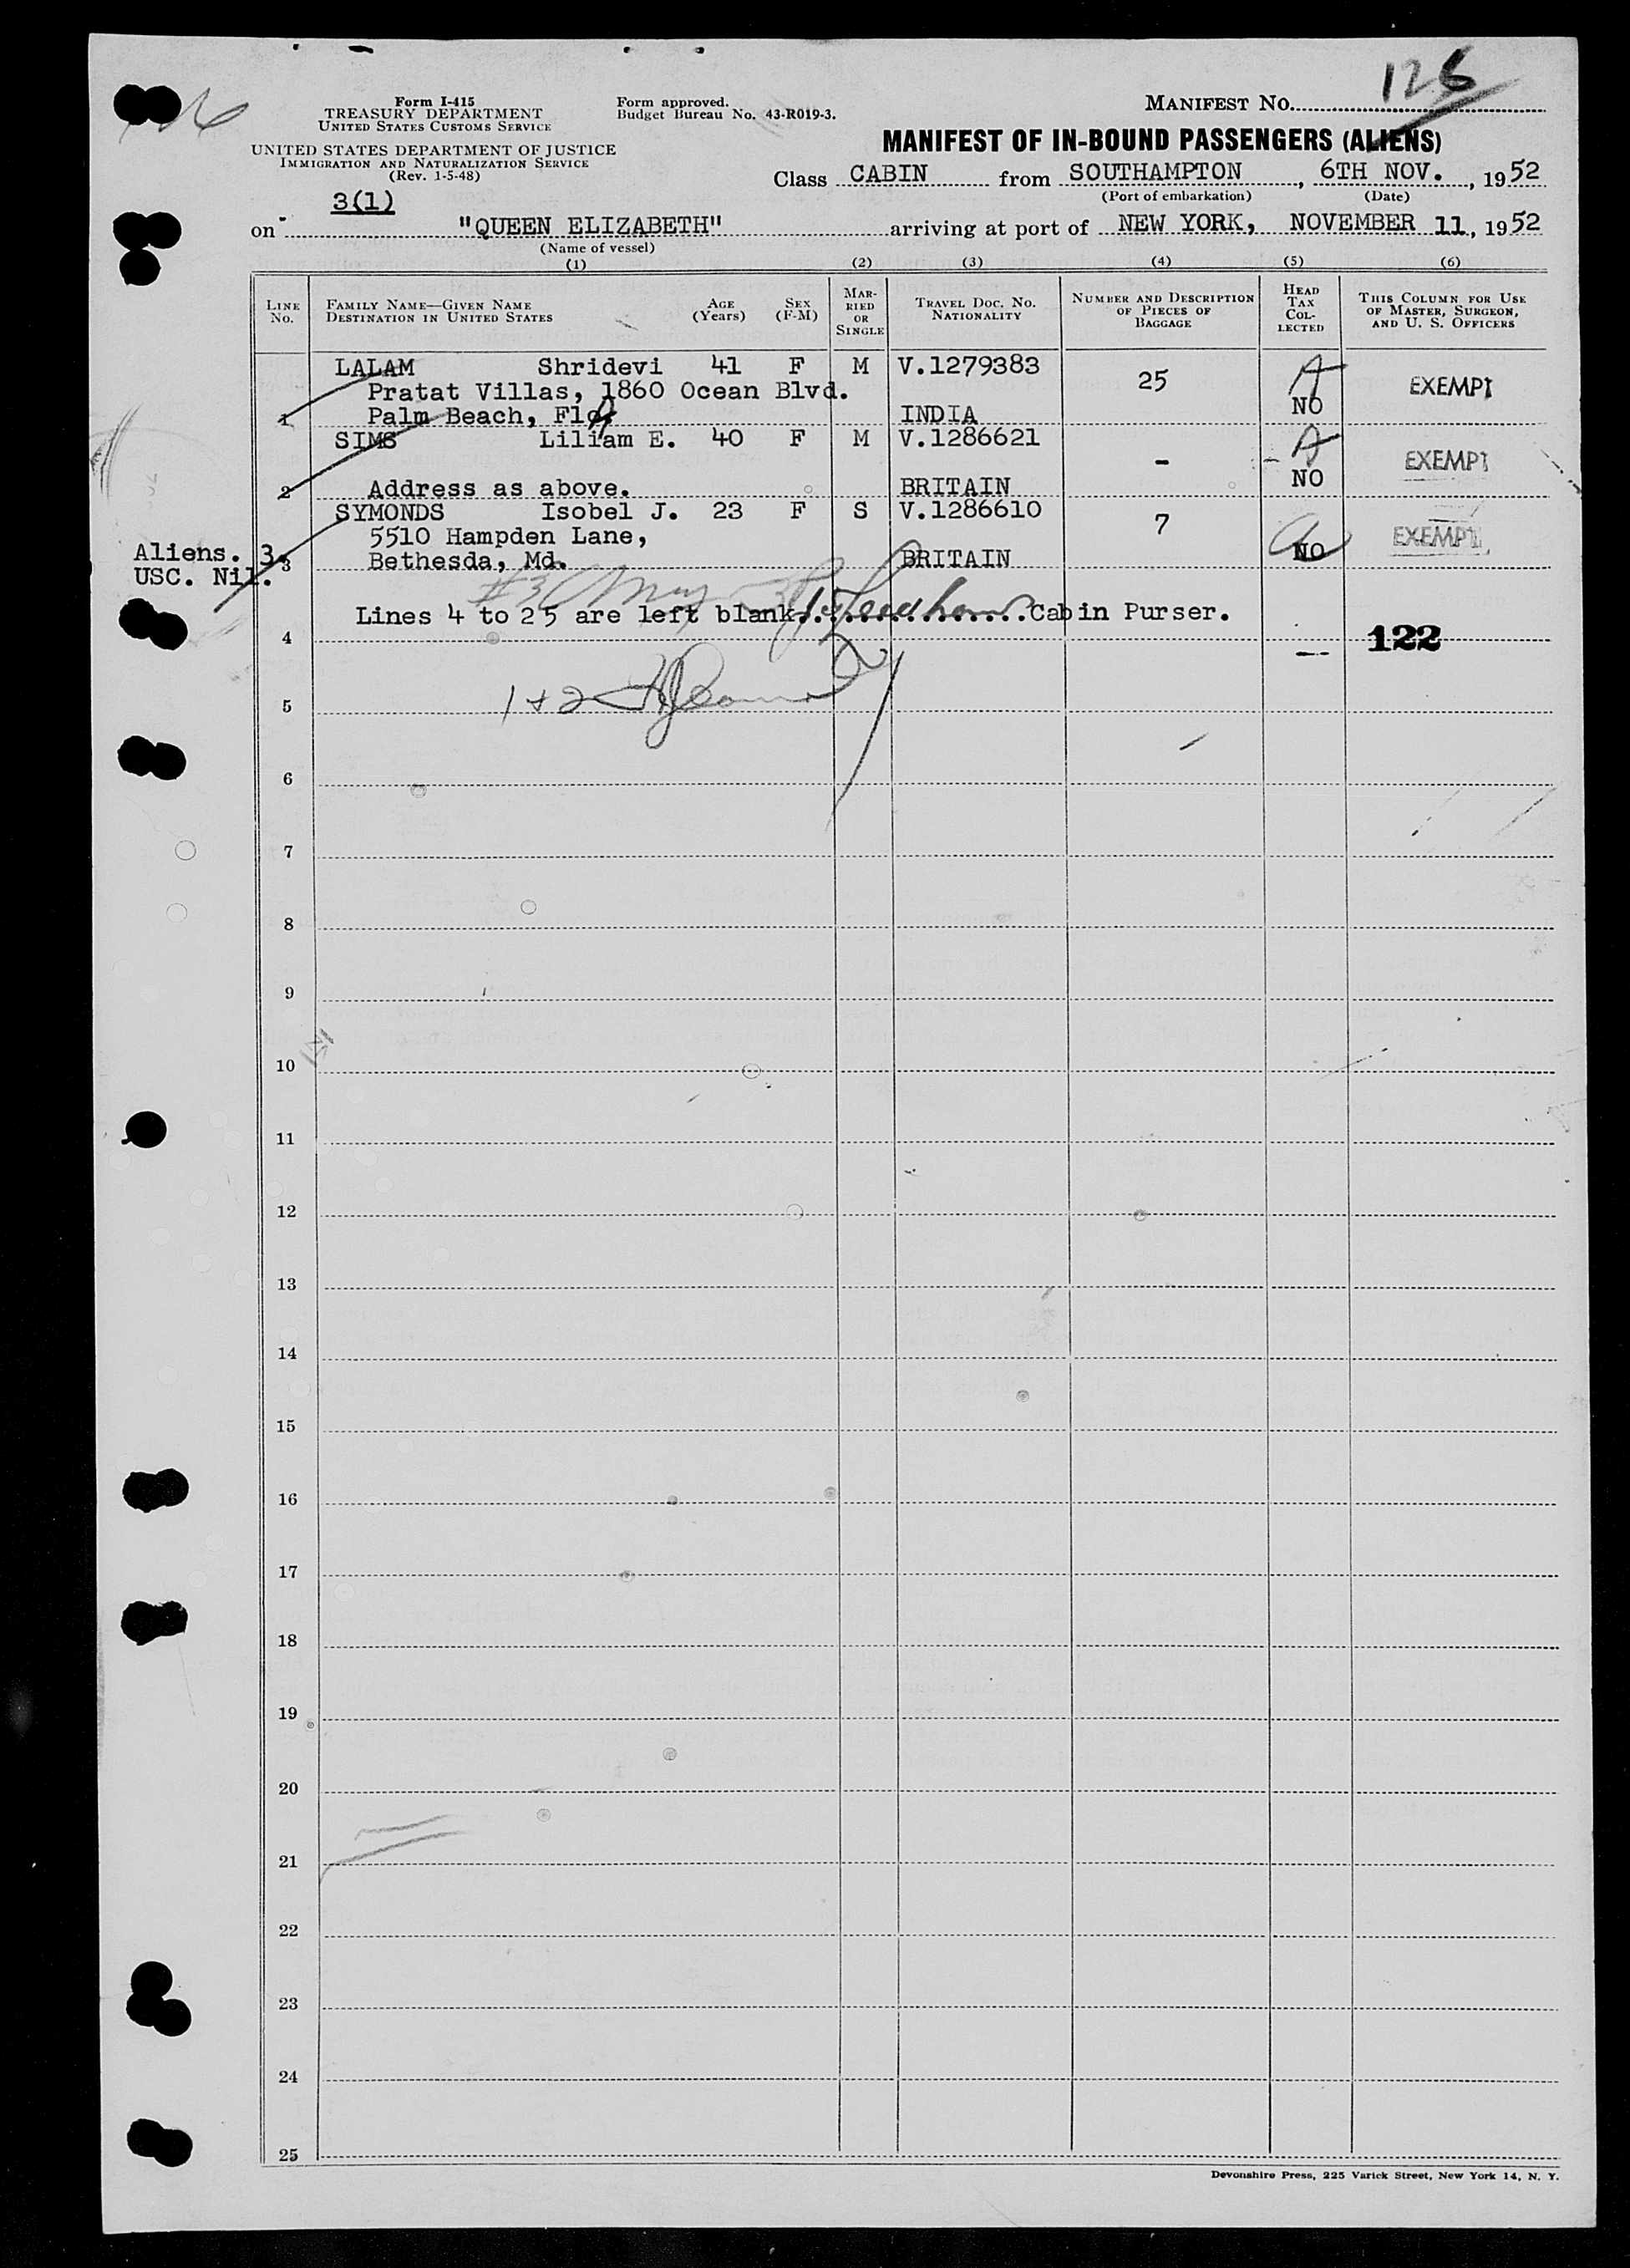 126
Form I-415
TREASURY DEPARTMENT
UNITED STATES CUSTOMS SERVICE
UNITED STATES DEPARTMENT OF JUSTICE
IMMIGRATION AND NATURALIZATION SERVICE
(Rev. 1-5-48)
Form approved.
Budget Bureau No. 43-R019-3.
MANIFEST NO.
MANIFEST OF IN-BOUND PASSENGERS (ALIENS)
Class CABIN from SOUTHAMPTON, 6TH NOV., 1952
(Port of embarkation) (Date)
3(1)
on "QUEEN ELIZABETH" arriving at port of NEW YORK, NOVEMBER 11, 1952
(Name of vessel)
(1) (2) (3) (4) (5) (6)
LINE No. FAMILY NAME—GIVEN NAME DESTINATION IN UNITED STATES AGE (Years) SEX (F-M) MARRIED OR SINGLE TRAVEL DOC. NO. NATIONALITY NUMBER AND DESCRIPTION OF PIECES OF BAGGAGE HEAD TAX COLLECTED THIS COLUMN FOR USE OF MASTER, SURGEON, AND U. S. OFFICERS
LALAM Shridevi 41 F M V.1279383
Pratat Villas, 1860 Ocean Blvd. 25 A EXEMPT
1 Palm Beach, Fla INDIA NO
SIMS Liliam E. 40 F M V.1286621 A
- EXEMPT
2 Address as above. BRITAIN NO
SYMONDS Isobel J. 23 F S V.1286610
5510 Hampden Lane, 7 EXEMPT
Aliens. 3.
3 Bethesda, Md. BRITAIN NO
USC. Nil.
#3
Lines 4 to 25 are left blank. Cabin Purser.
4 122
1+2
5
6
7
8
9
10
11
12
13
14
15
16
17
18
19
20
21
22
23
24
25
Devonshire Press, 225 Varick Street, New York 14, N. Y.